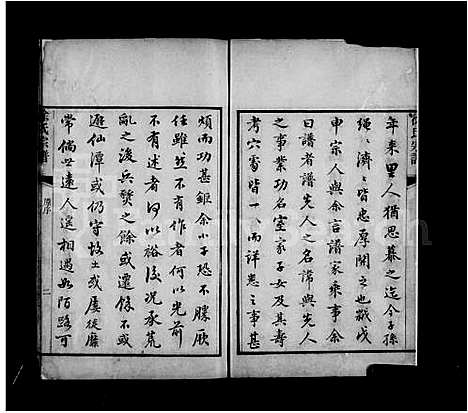 年来里人犹思慕之迄今子孫
繩〻濟〻皆忠厚開之也歲戊
申宗人與余言譜家乘事余
曰譜者譜先人之名諱與先人
之事業功名室家子女及其壽
考穴窀皆一〻而詳志之事甚
煩而功甚鉅余小子恐不勝厥
任雖然不有作者何以光前
不有述者何以裕後况承荒
亂之後兵燹之餘或遷餘不或
遊仙潭或仍守故土或屡徙靡
常倘世遠人遥相遇如陌路可
氏宗譜
原序
二